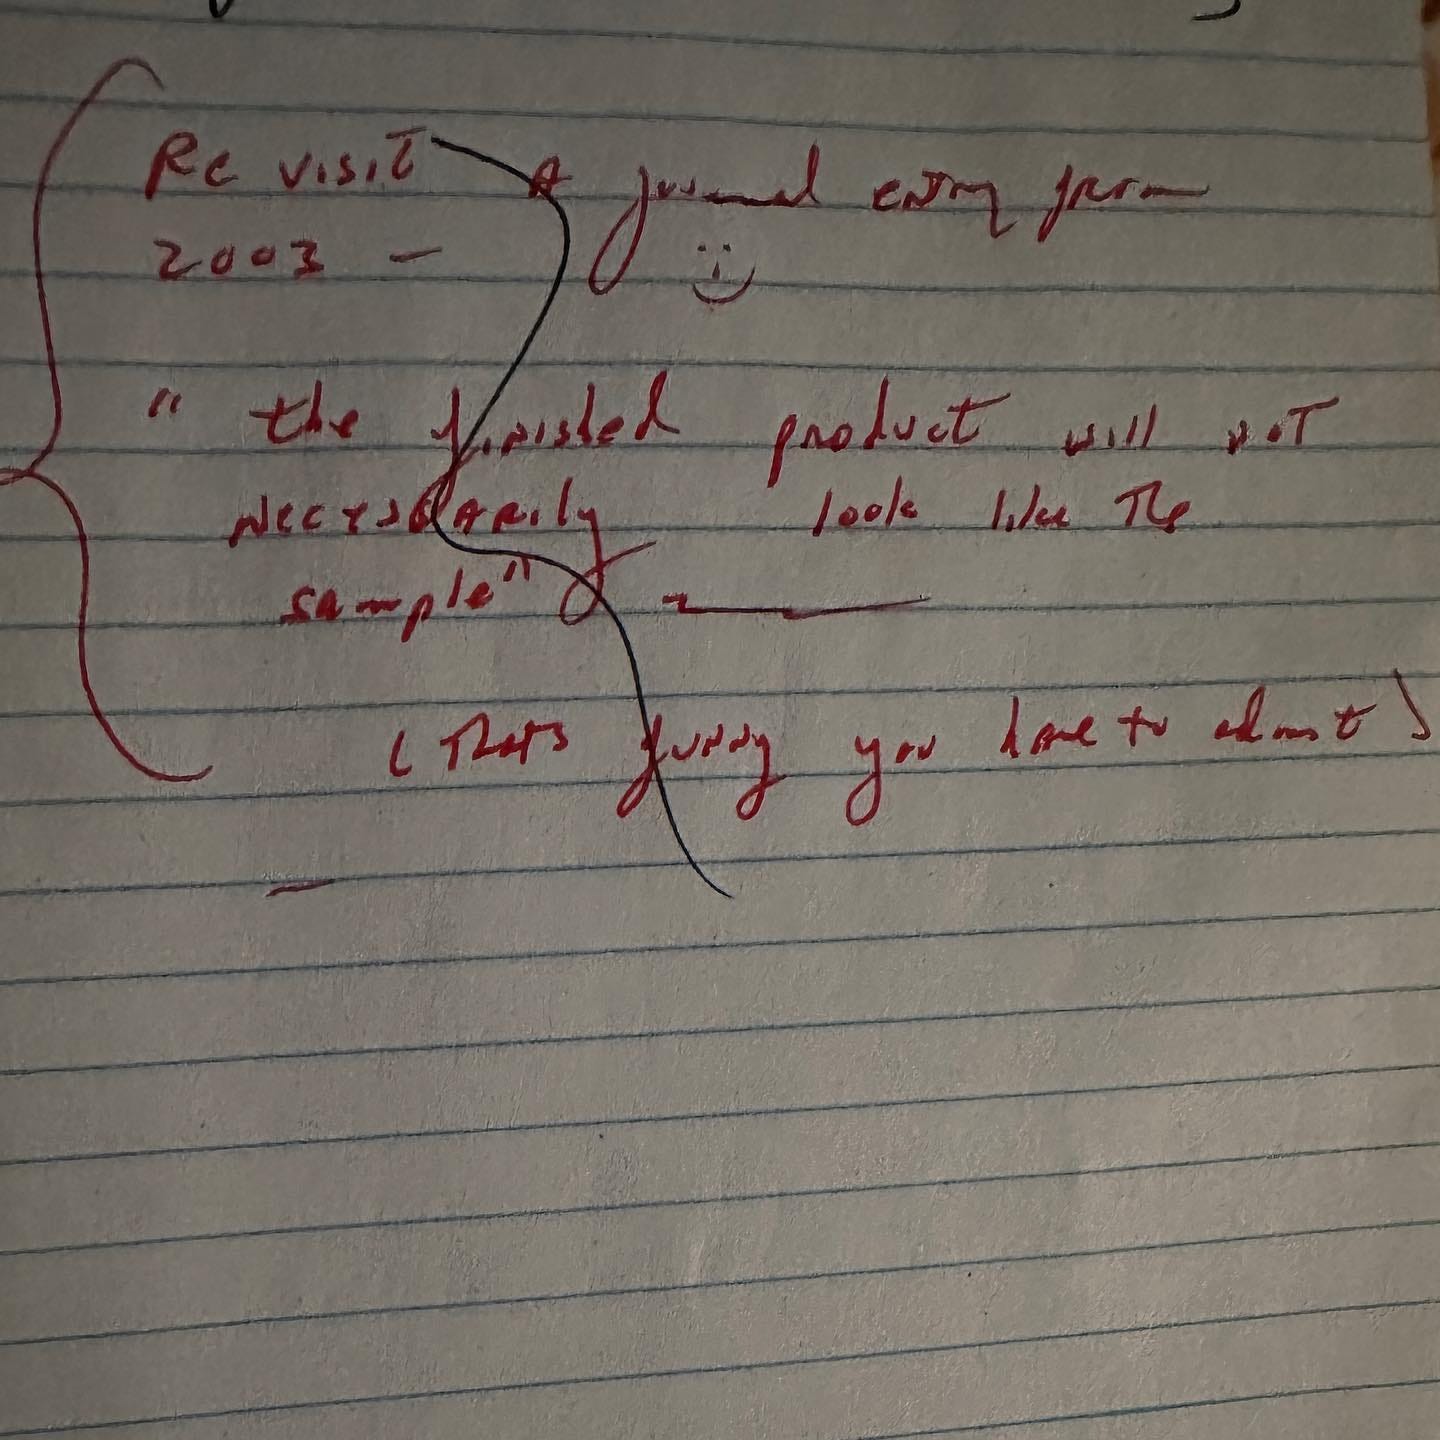 Re visit A journal entry from
2003 —
" the finished product will not
Necessarily look like the
sample"
( Thats funny you have to admit )